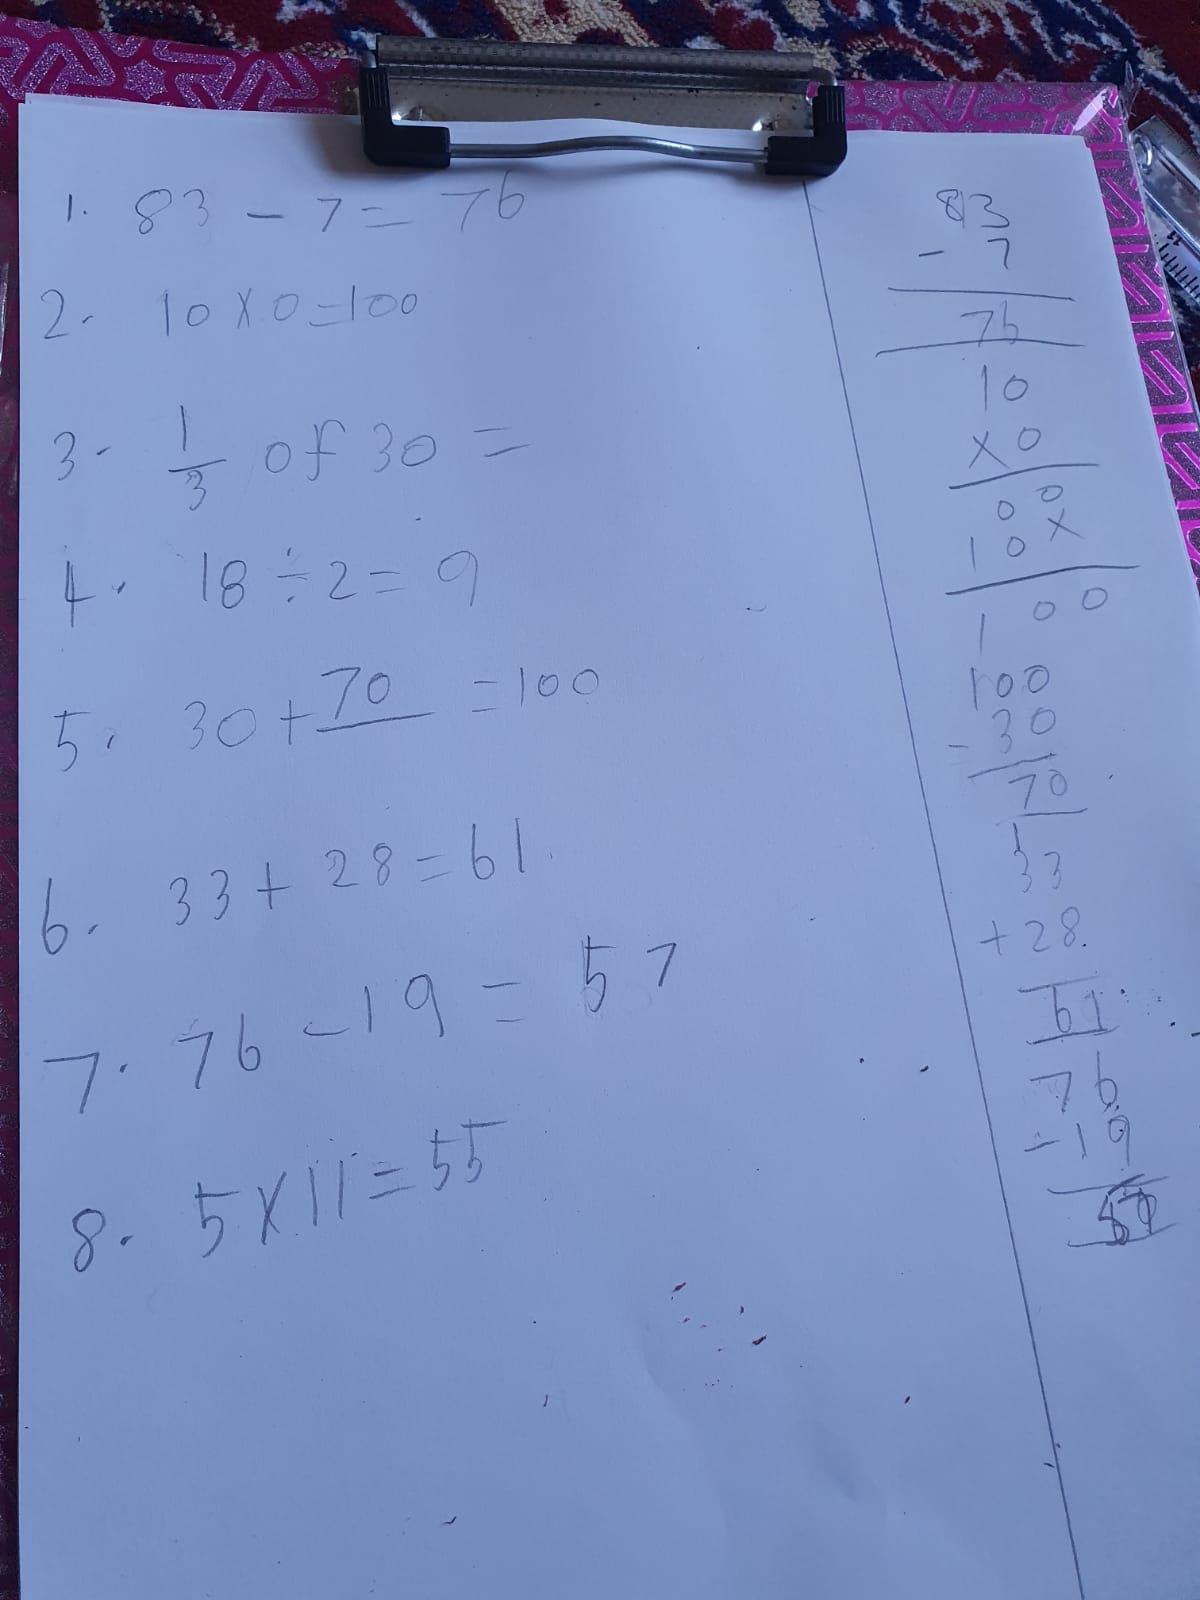 1. 83 - 7 = 76
2. 10 X 0 = 100
3. 1/3 of 30 =
4. 18 ÷ 2 = 9
5. 30 + 70 = 100
6. 33 + 28 = 61
7. 76 - 19 = 57
8. 5 X 11 = 55
83
- 7
76
10
X 0
0 0
1 0 X
1 0 0
100
- 30
70
1
33
+ 28
61
76
- 19